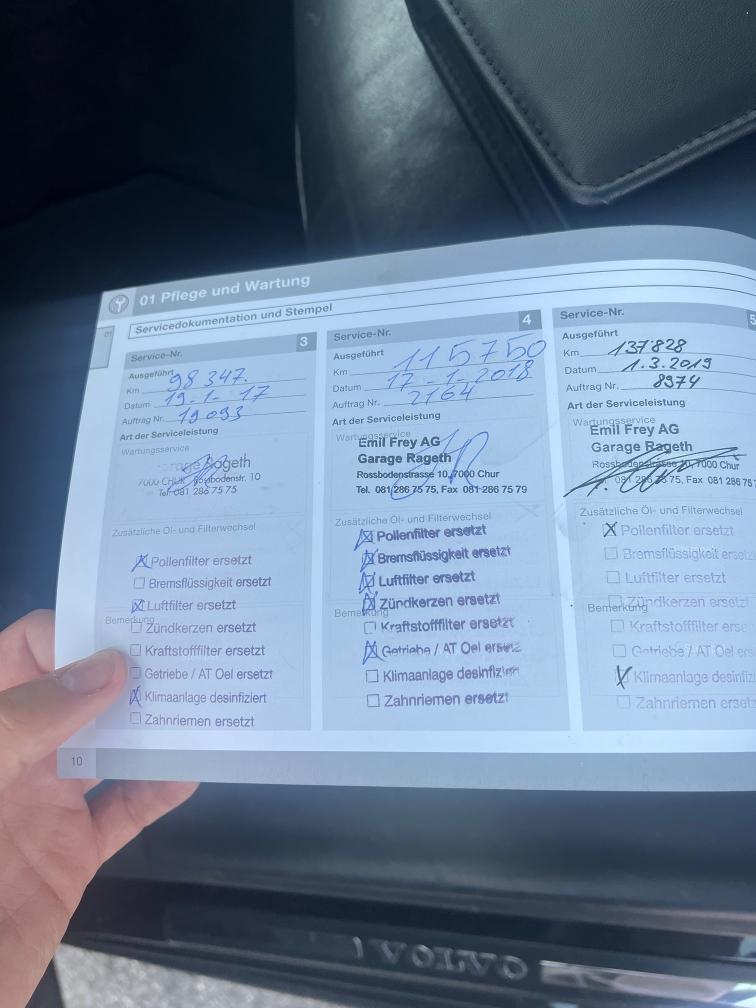 01 Pflege und Wartung
01
Servicedokumentation und Stempel
Service-Nr. 3
Ausgeführt
Km 98 347.
Datum 19.1- 17
Auftrag Nr. 19093
Art der Serviceleistung
Wartungsservice
Garage Rageth
7000 CHUR Rossbodenstr. 10
Tel. 081 286 75 75
Zusätzliche Öl- und Filterwechsel
Pollenfilter ersetzt
Bremsflüssigkeit ersetzt
Luftfilter ersetzt
Bemerkung
Zündkerzen ersetzt
Kraftstofffilter ersetzt
Getriebe / AT Oel ersetzt
Klimaanlage desinfiziert
Zahnriemen ersetzt
Service-Nr. 4
Ausgeführt
Km 115750
Datum 17-1-2018
Auftrag Nr. 2164
Art der Serviceleistung
Wartungsservice
Emil Frey AG
Garage Rageth
Rossbodenstrasse 10, 7000 Chur
Tel. 081 286 75 75, Fax 081 286 75 79
Zusätzliche Öl- und Filterwechsel
Pollenfilter ersetzt
Bremsflüssigkeit ersetzt
Luftfilter ersetzt
Zündkerzen ersetzt
Bemerkung
Kraftstofffilter ersetzt
Getriebe / AT Oel ersetzt
Klimaanlage desinfiziert
Zahnriemen ersetzt
Service-Nr. 5
Ausgeführt
Km 137828
Datum 1.3.2019
Auftrag Nr. 8974
Art der Serviceleistung
Wartungsservice
Emil Frey AG
Garage Rageth
Rossbodenstrasse 10, 7000 Chur
081 286 75 75, Fax 081 286 75
Zusätzliche Öl- und Filterwechsel
Pollenfilter ersetzt
Bremsflüssigkeit ersetz
Luftfilter ersetzt
Zündkerzen ersetzt
Bemerkung
Kraftstofffilter erse
Getriebe / AT Oel ers
Klimaanlage desinfiz
Zahnriemen ersetz
10
VOLVO